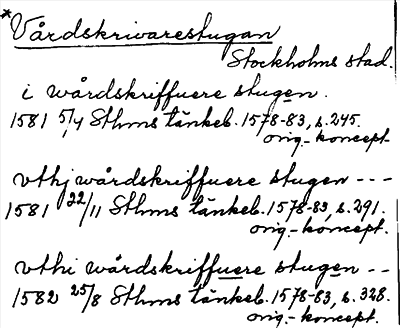 *Vårdskrivarestugan
Stockholms stad.
i wårdskriffuere stugen.
1581 5/4 Sthms tänkeb. 1578-83, s. 245.
orig.-koncept.
vthj wårdskriffuere stugen ---
1581 22/11 Sthms tänkeb. 1578-83, s. 291.
orig.-koncept.
vthi wårdskriffuere stugen --
1582 25/8 Sthms tänkeb. 1578-83, s. 328.
orig.-koncept.